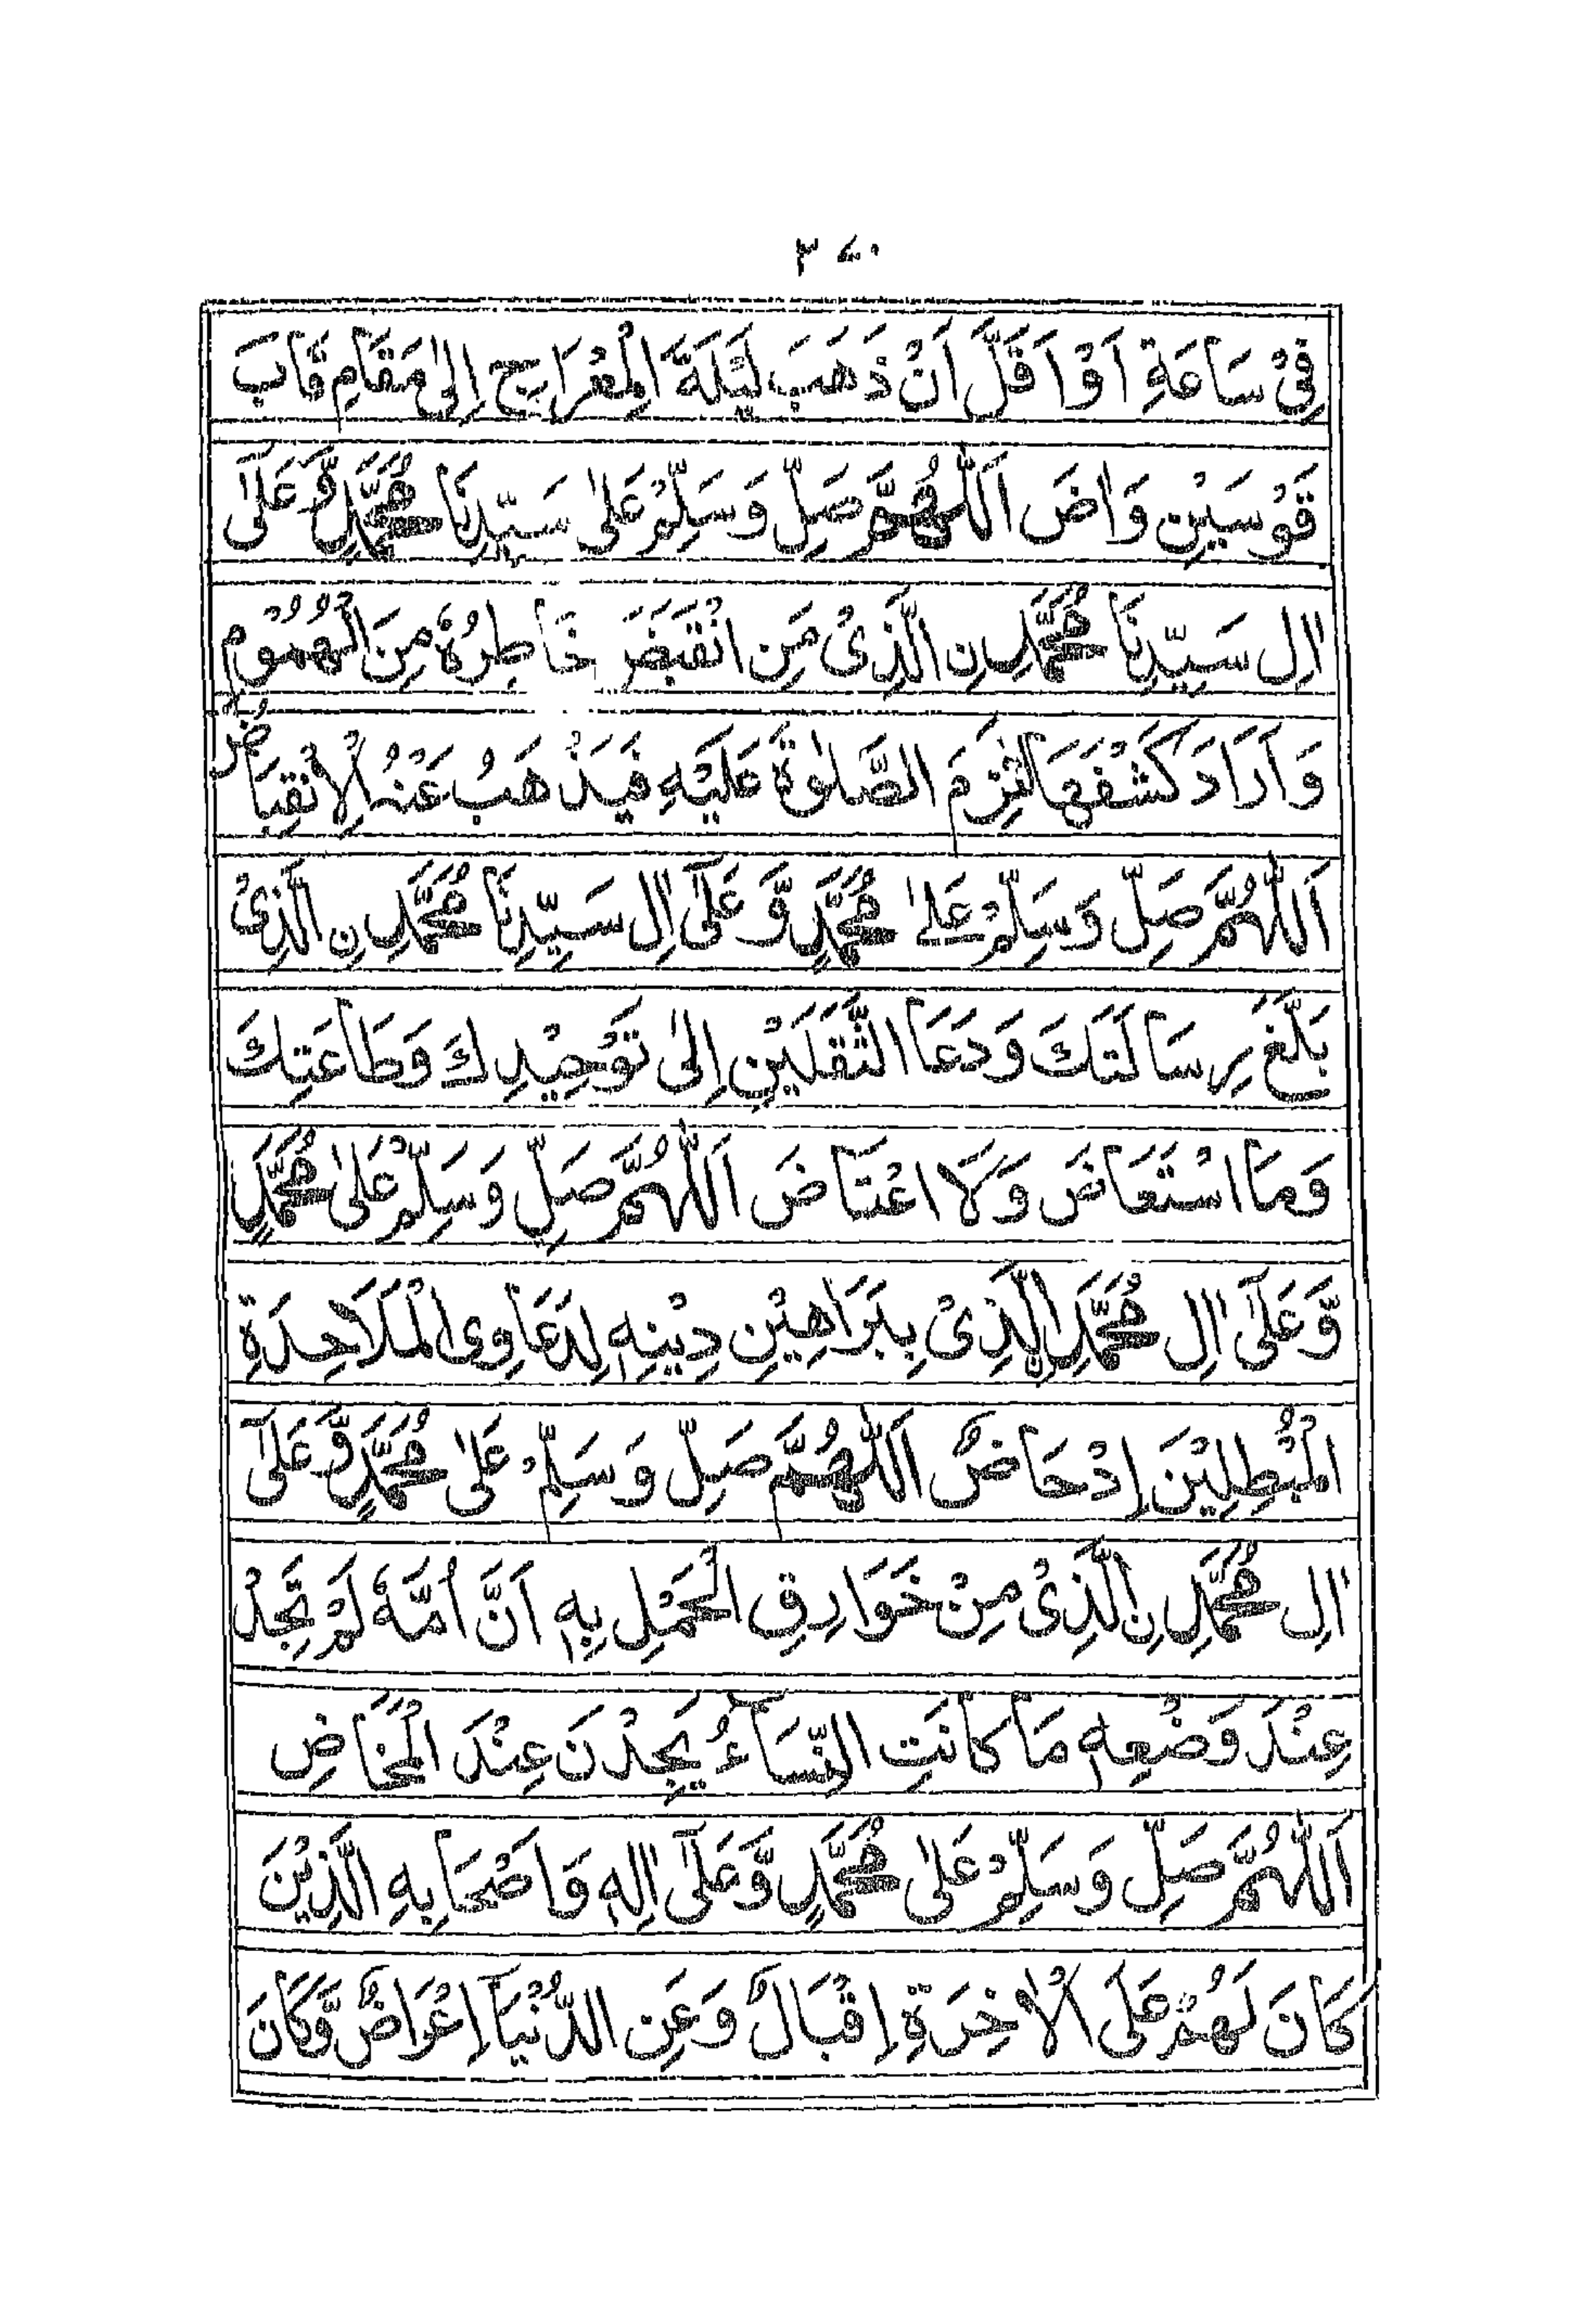 ٣٤٠
فِیْ سَاعَةٍ اَوْ اَقَلَّ اَنْ ذَهَبَ لَیْلَةَ الْمِعْرَاجِ اِلٰی مَقَامِ قَابَ
قَوْسَیْنِ وَاٰضَ اَللّٰهُمَّ صَلِّ وَسَلِّمْ عَلٰی سَیِّدِنَا مُحَمَّدٍ وَّعَلٰٓی
اٰلِ سَیِّدِنَا مُحَمَّدِ نِ الَّذِیْ مَنِ انْقَبَضَ خَاطِرُهٗ مِنَ الْهُمُوْمِ
وَاَرَادَ كَشْفَهَا لَزِمَ الصَّلٰوةَ عَلَیْهِ فَیَذْهَبُ عَنْهُ الْاِنْقِبَاضُ
اَللّٰهُمَّ صَلِّ وَسَلِّمْ عَلٰی مُحَمَّدٍ وَّ عَلٰٓی اٰلِ سَیِّدِنَا مُحَمَّدِ نِ الَّذِیْ
بَلَّغَ رِسَالَتَكَ وَدَعَا الثَّقَلَیْنِ اِلٰی تَوْحِیْدِكَ وَطَاعَتِكَ
وَمَا اسْتَعَاضَ وَلَا اعْتَاضَ اَللّٰهُمَّ صَلِّ وَسَلِّمْ عَلٰی مُحَمَّدٍ
وَّعَلٰٓی اٰلِ مُحَمَّدِ الَّذِیْ بِبَرَاهِیْنِ دِیْنِهٖ لِدَعَاوِی الْمَلَاحِدَةِ
الْمُبْطِلِیْنَ اِدْحَاضٌ اَللّٰهُمَّ صَلِّ وَسَلِّمْ عَلٰی مُحَمَّدٍ وَّعَلٰٓی
اٰلِ مُحَمَّدِ نِ الَّذِیْ مِنْ خَوَارِقِ الْحَمْلِ بِهٖ اَنَّ اُمَّهٗ لَمْ تَجِدْ
عِنْدَ وَضْعِهٖ مَا كَانَتِ النِّسَآءُ یَجِدْنَ عِنْدَ الْمَخَاضِ
اَللّٰهُمَّ صَلِّ وَسَلِّمْ عَلٰی مُحَمَّدٍ وَّعَلٰٓی اٰلِهٖ وَاَصْحَابِهِ الَّذِیْنَ
كَانَ لَهُمْ عَلَی الْاٰخِرَةِ اِقْبَالٌ وَعَنِ الدُّنْیَآ اِعْرَاضٌ وَّكَانَ